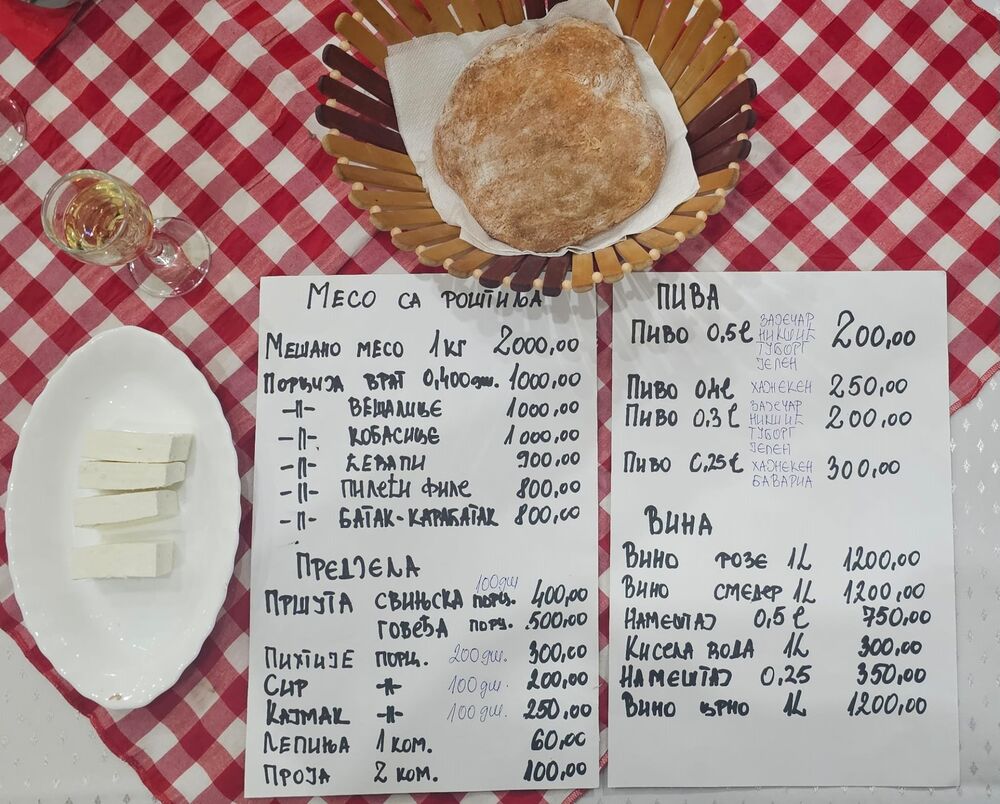 Месо са роштиља
Мешано месо 1кг 2000,00
Порција врат 0,400gш. 1000,00
-||- вешалице 1000,00
-||- кобасице 1000,00
-||- ћевапи 900,00
-||- пилећи филе 800,00
-||- батак-карабатак 800,00
Предјела
100gш
Пршута свињска порц. 400,00
говеђа порц. 500,00
Пихтије порц. 200gш. 300,00
Сир -||- 100gш. 200,00
Кајмак -||- 100gш. 250,00
Лепиња 1 ком. 60,00
Проја 2 ком. 100,00
Пива
Пиво 0,5l ЗАЈЕЧАР НИКШИЋ ТУБОРГ ЈЕЛЕН 200,00
Пиво 0,4l ХАЈНЕКЕН 250,00
Пиво 0,3l ЗАЈЕЧАР НИКШИЋ ТУБОРГ ЈЕЛЕН 200,00
Пиво 0,25l ХАЈНЕКЕН БАВАРИА 300,00
Вина
Вино розе 1L 1200,00
Вино смедер 1L 1200,00
Намештај 0,5l 750,00
Кисела вода 1L 300,00
Намештај 0,25 350,00
Вино црно 1L 1200,00